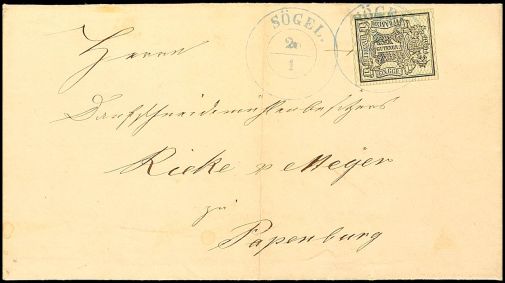 SÖGEL.
2
1
SÖGEL
Herrn
Dampfschneidemühlenbesitzers
Rieke & Meyer
zu
Papenburg